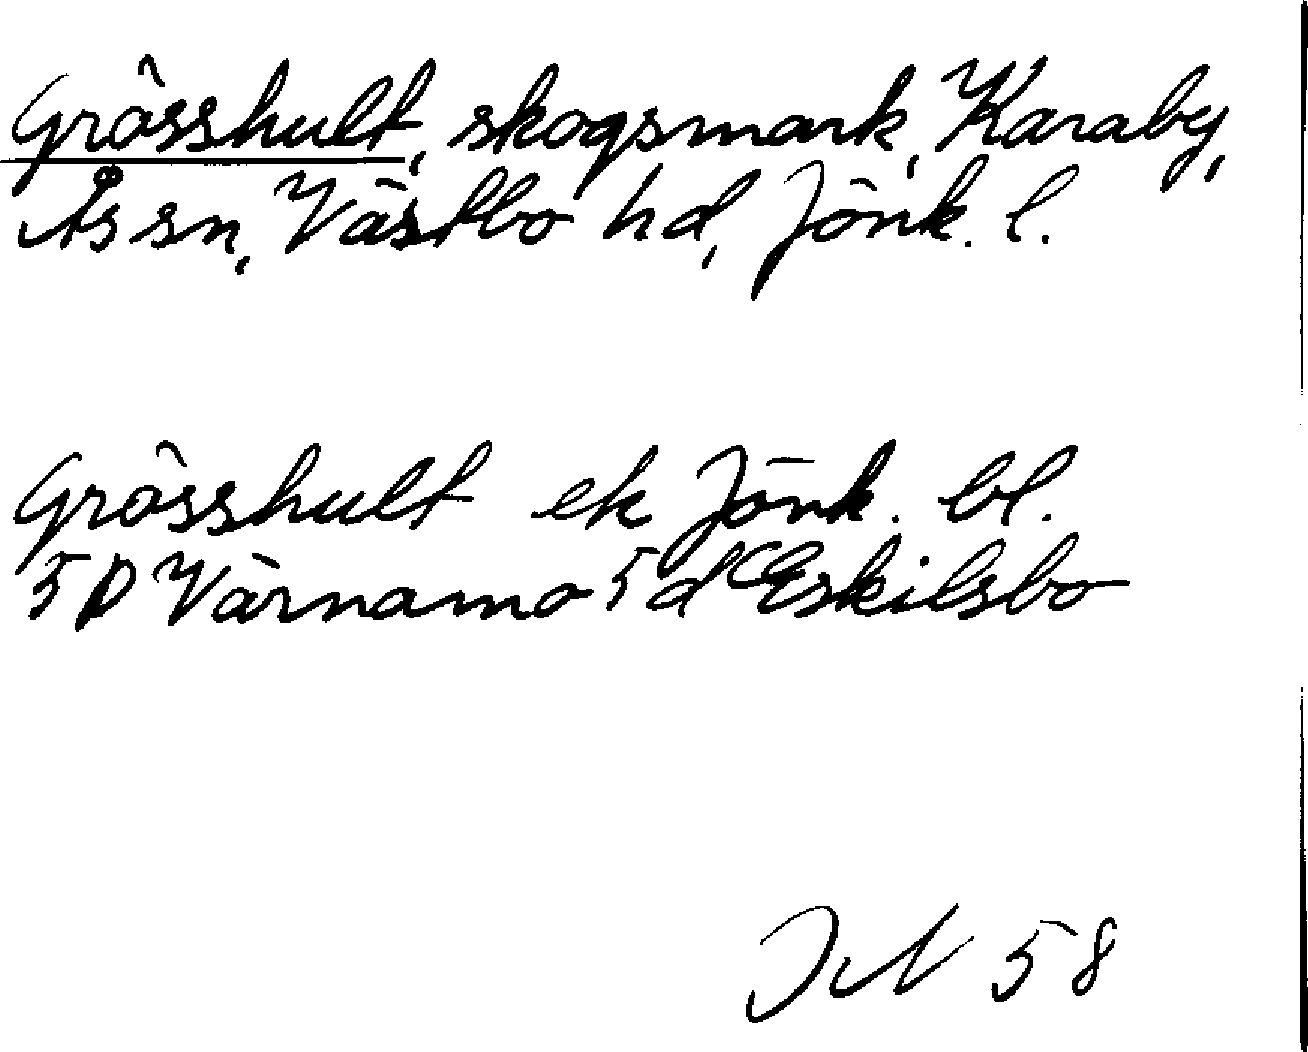 Grässhult, skogsmark, Karaby,
Ås sn, Västbo hd, Jönk. l.
Grässhult ek Jönk. bl.
5D Värnamo 5d Eskilsbo
58